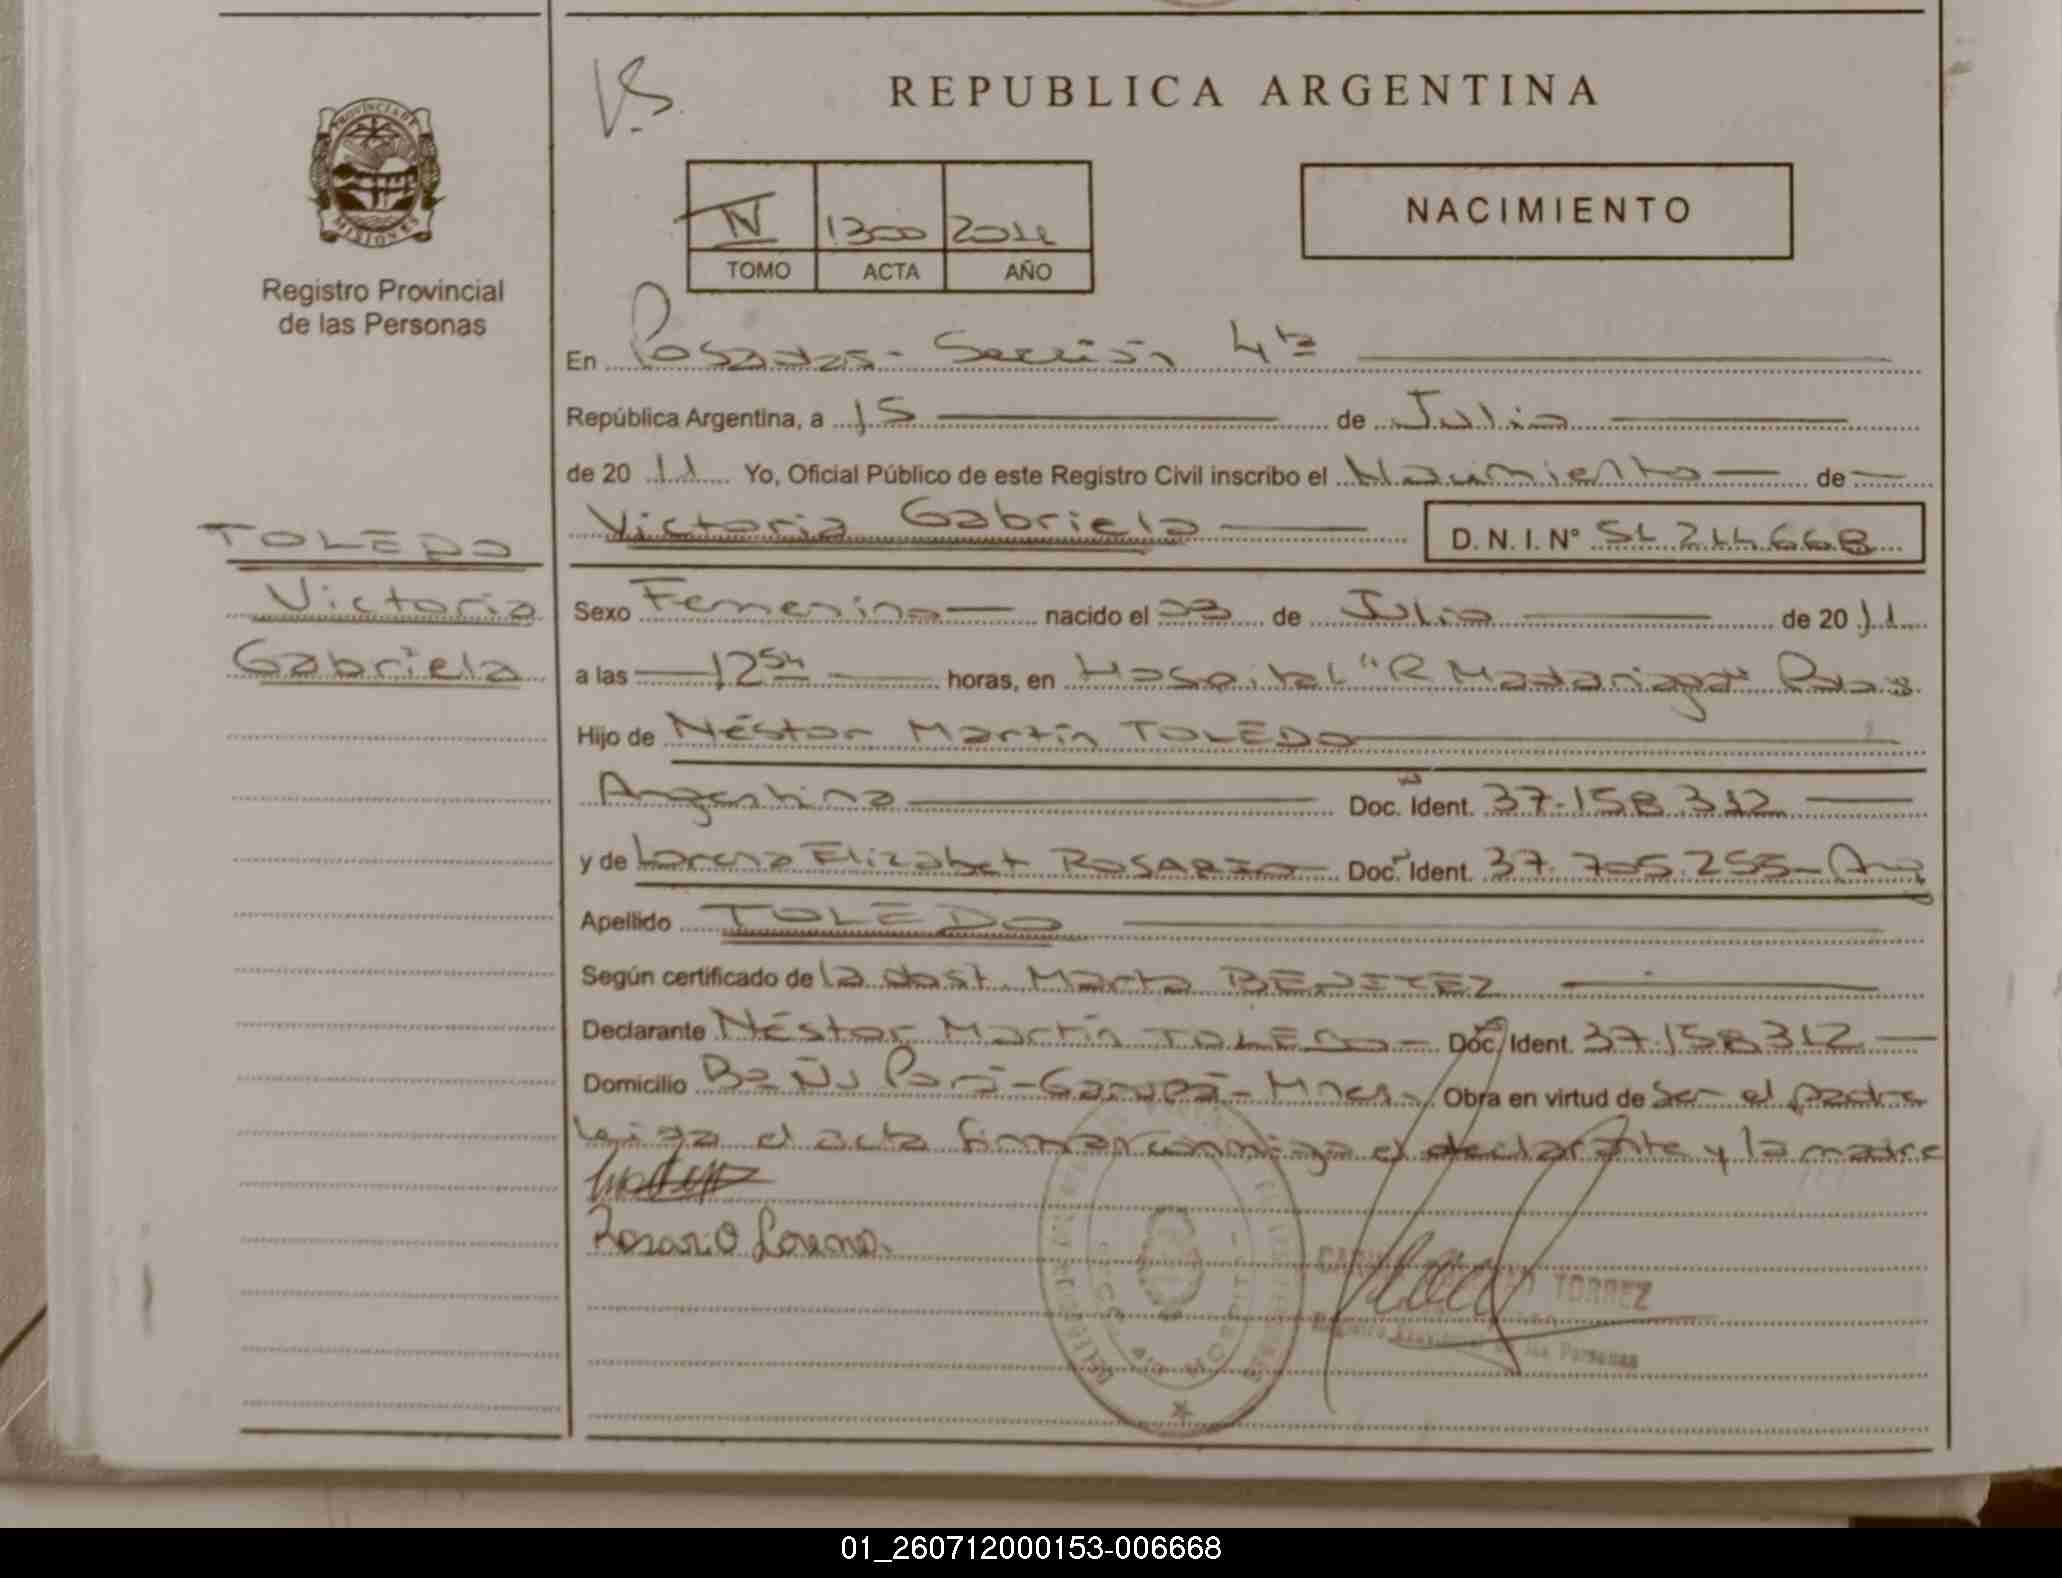 REPUBLICA ARGENTINA
V.S.
PROVINCIA DE
MISIONES
Registro Provincial
de las Personas
IV 1300 2011
TOMO ACTA AÑO
NACIMIENTO
En Posadas - Sección 4ta
República Argentina, a 15 de Julio
de 20 11 Yo, Oficial Público de este Registro Civil inscribo el Nacimiento de
Victoria Gabriela D. N. I. N° 51.214.668
TOLEDO
Victoria
Gabriela
Sexo Femenino nacido el 03 de Julio de 20 11
a las 12 54 horas, en Hospital "R Madariaga" Posadas
Hijo de Néstor Martín TOLEDO
Argentina Doc. Ident. 37.158.312
y de Lorena Elizabet ROSARIO Doc. Ident. 37.705.255 - Arg
Apellido TOLEDO
Según certificado de la obst. Marta BENITEZ
Declarante Néstor Martín TOLEDO - Doc. Ident. 37.158312
Domicilio Ñu Porá - Garupá - Mnes. Obra en virtud de ser el padre
leída el acta firman conmigo el declarante y la madre
Rosario Lorena.
TORREZ
Registro Provincial de las Personas
01_260712000153-006668